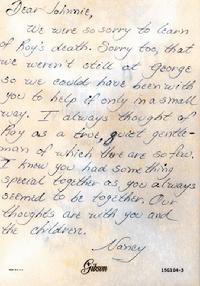 Dear Johnnie,
We were so sorry to learn
of Roy's death. Sorry too, that
we weren't still at George
so we could have been with
you to help if only in a small
way. I always thought of
Roy as a true, quiet gentle-
man of which there are so few.
I knew you had something
special together as you always
seemed to be together. Our
thoughts are with you and
the children.
Nancy
Gibson
15G104-3